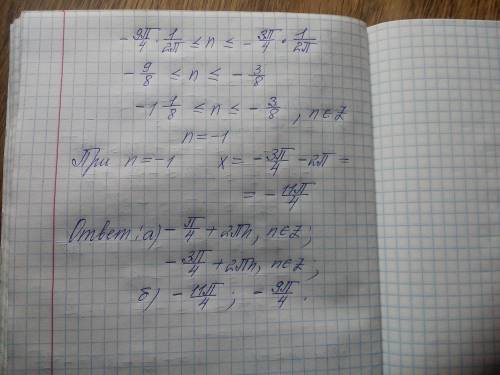 -9π/4 · 1/2π ≤ n ≤ -3π/4 · 1/2π
-9/8 ≤ n ≤ -3/8
-1 1/8 ≤ n ≤ -3/8 , n∈Z
n=-1
При n=-1 x= -3π/4 -2π =
= -11π/4
Ответ: а) -π/4 + 2πn, n∈Z;
-3π/4 + 2πn, n∈Z;
б) -11π/4 ; -9π/4 .